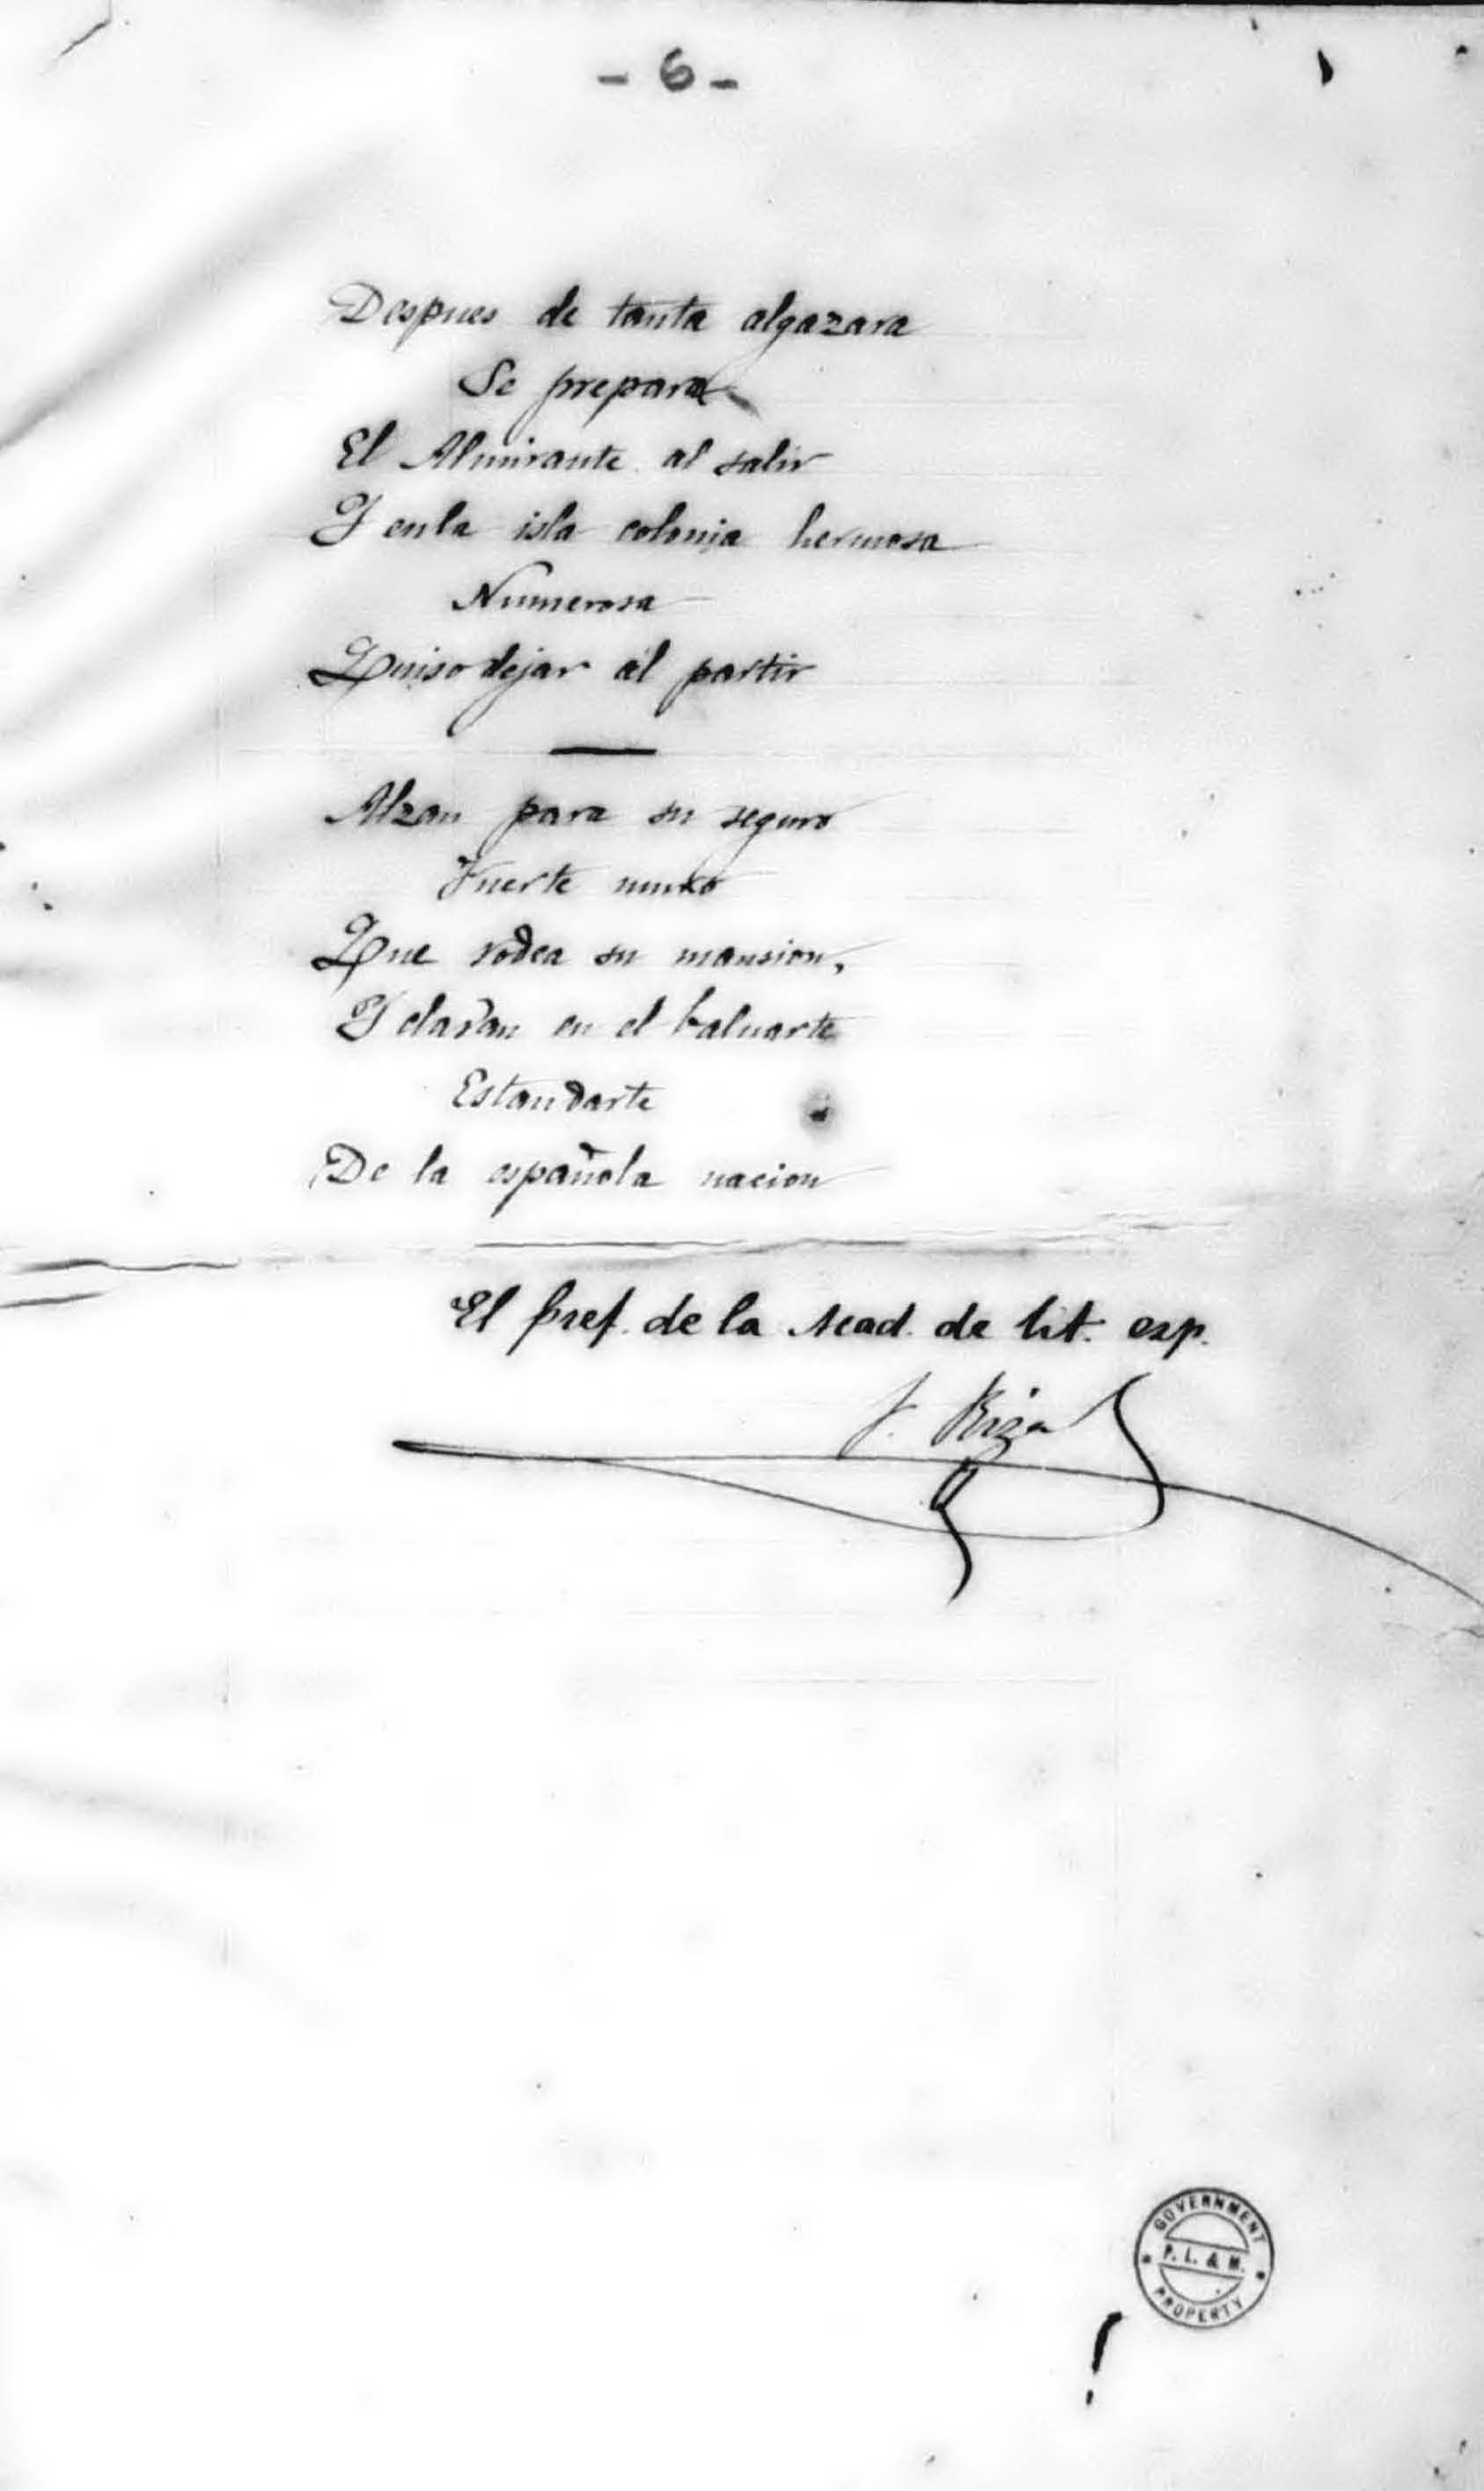 - 6 -
Despues de tanta algazara
Se prepara
El Almirante al salir
Y en la isla colonia hermosa
Numerosa
Quiso dejar al partir
Alzan para su seguro
Fuerte muro
Que rodea su mansion,
Y clavan en el baluarte
Estandarte
De la española nacion
El pref. de la Acad. de lit. esp.
J. Rizal
GOVERNMENT
P. L. & M.
PROPERTY